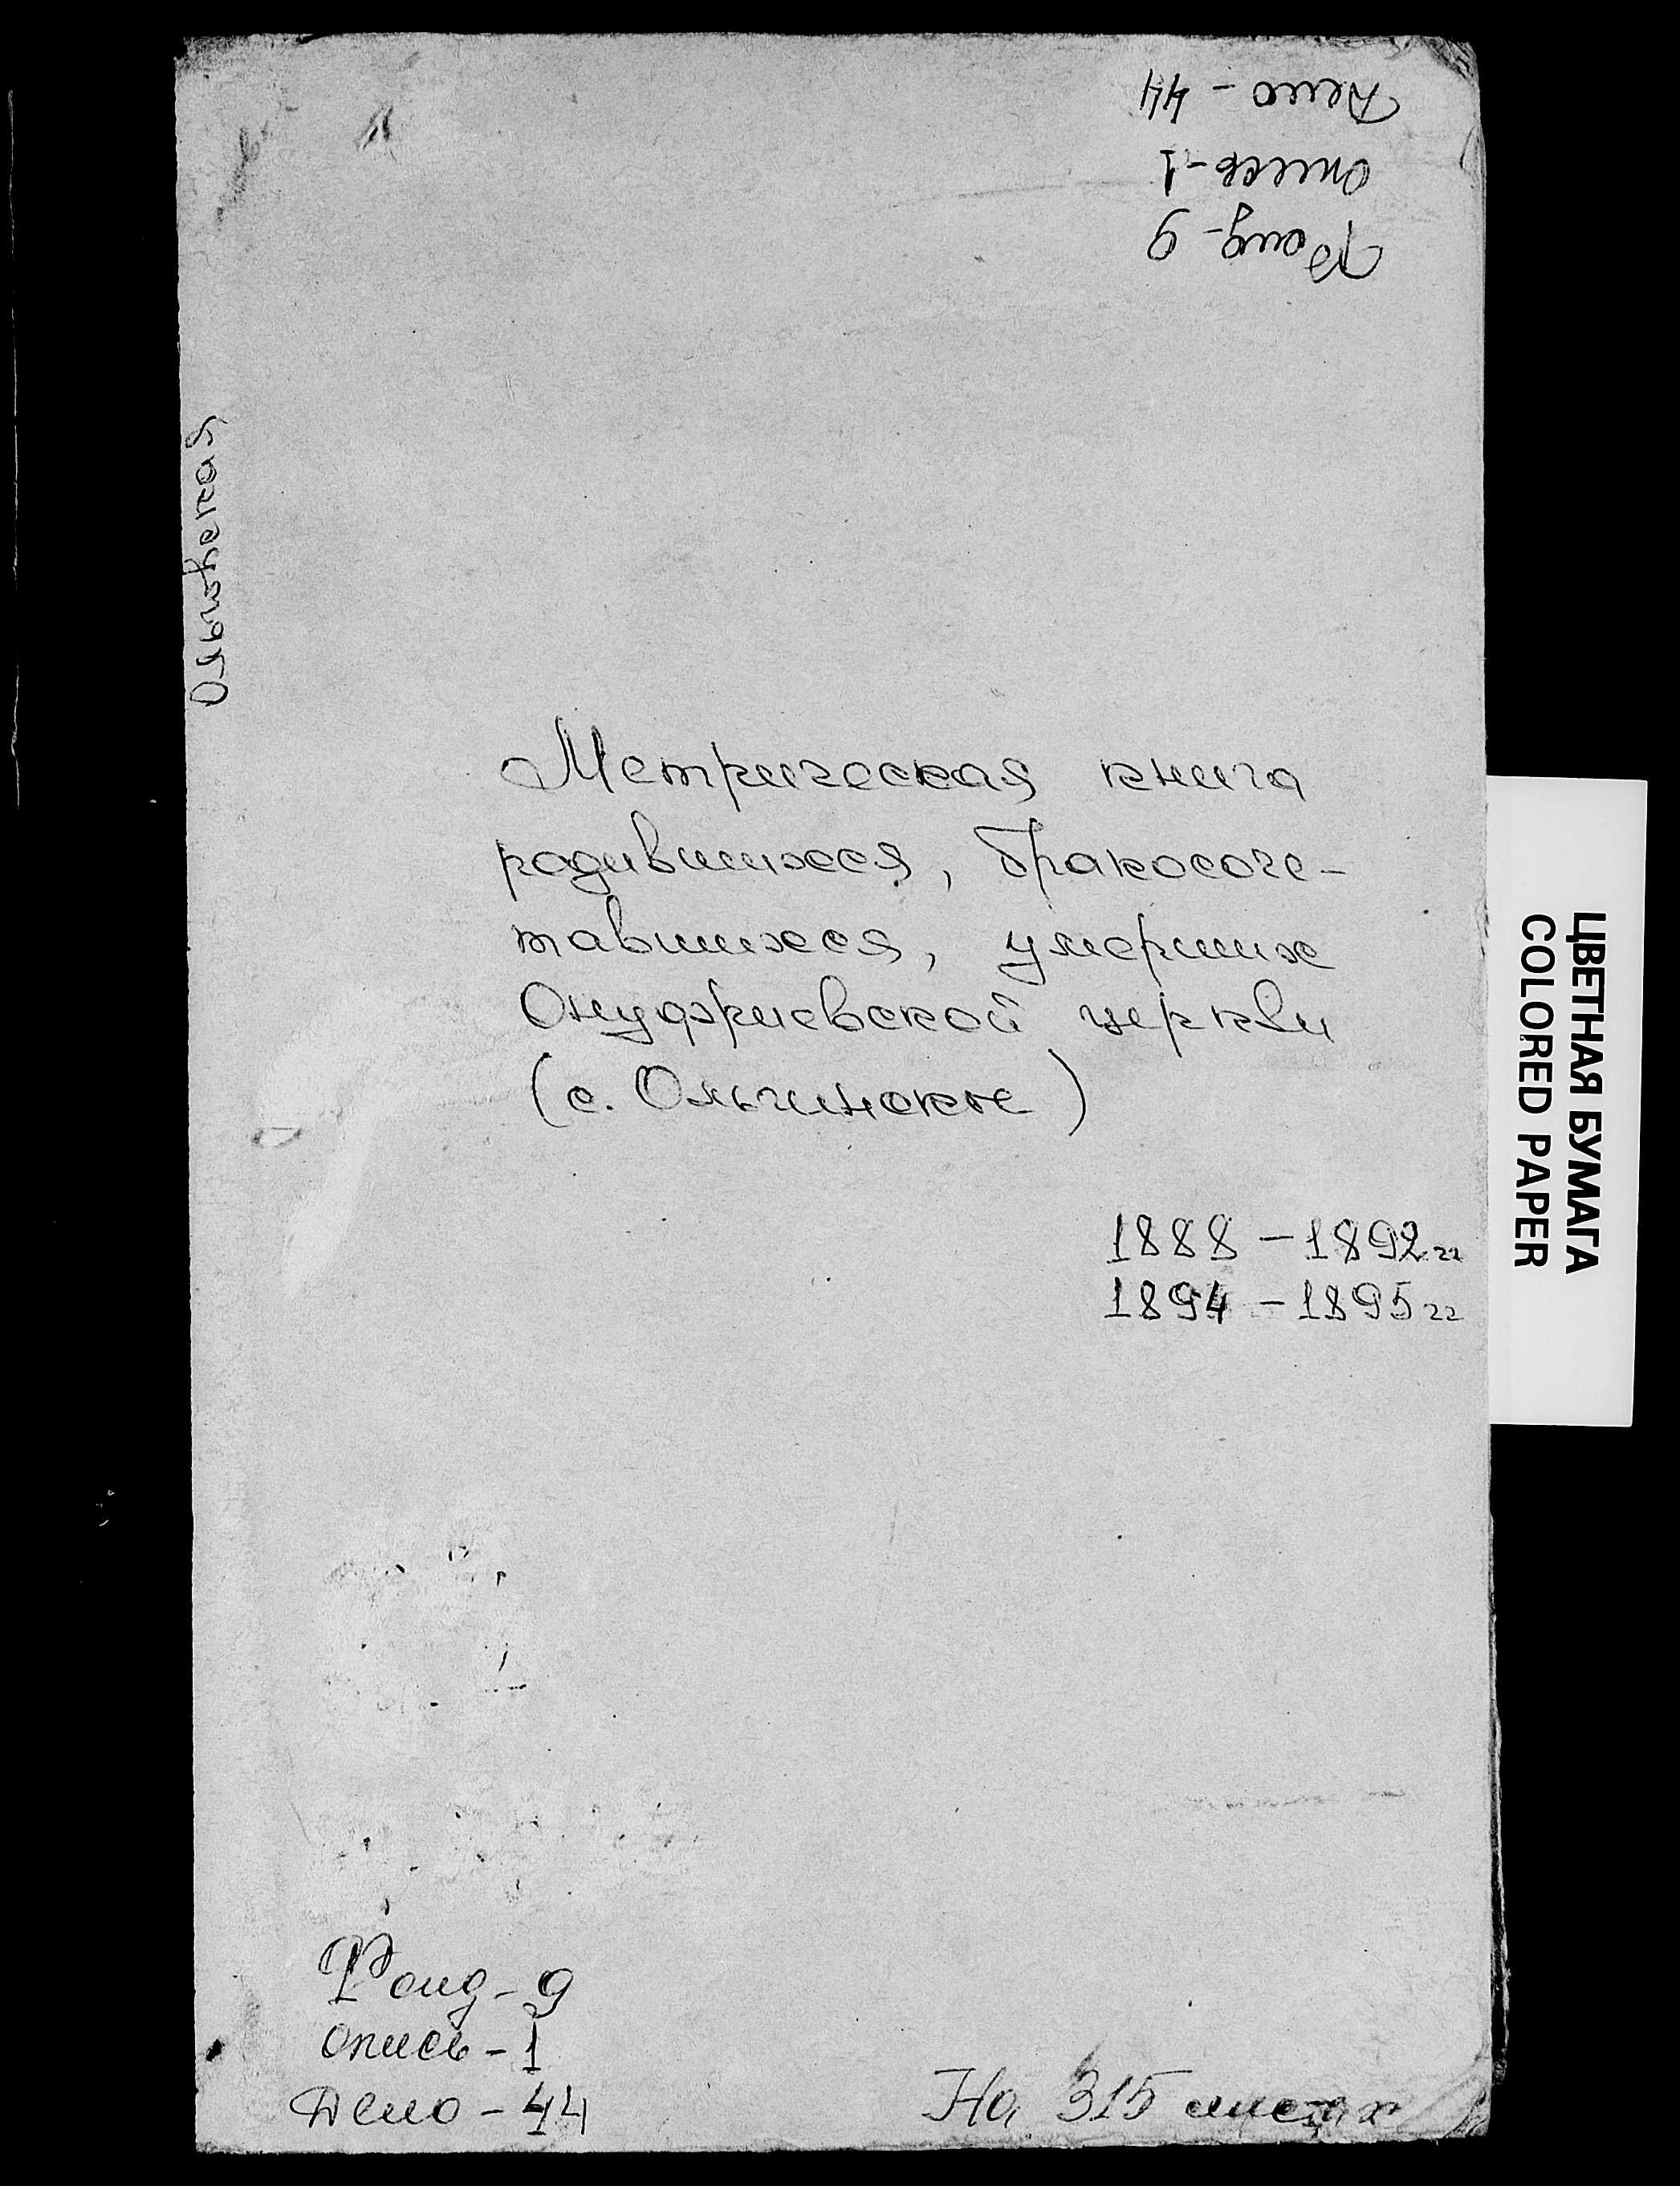 Дело - 44
опись - 1
Фонд - 9
Метрическая книга
родившихся, бракосоче-
тавшихся, умерших
Онуфриевской церкви
(с. Ольгинское)
1888 - 1892 гг
1894 - 1895 гг
ЦВЕТНАЯ БУМАГА
COLORED PAPER
Фонд - 9
опись - 1
Дело - 44
На 315 листах